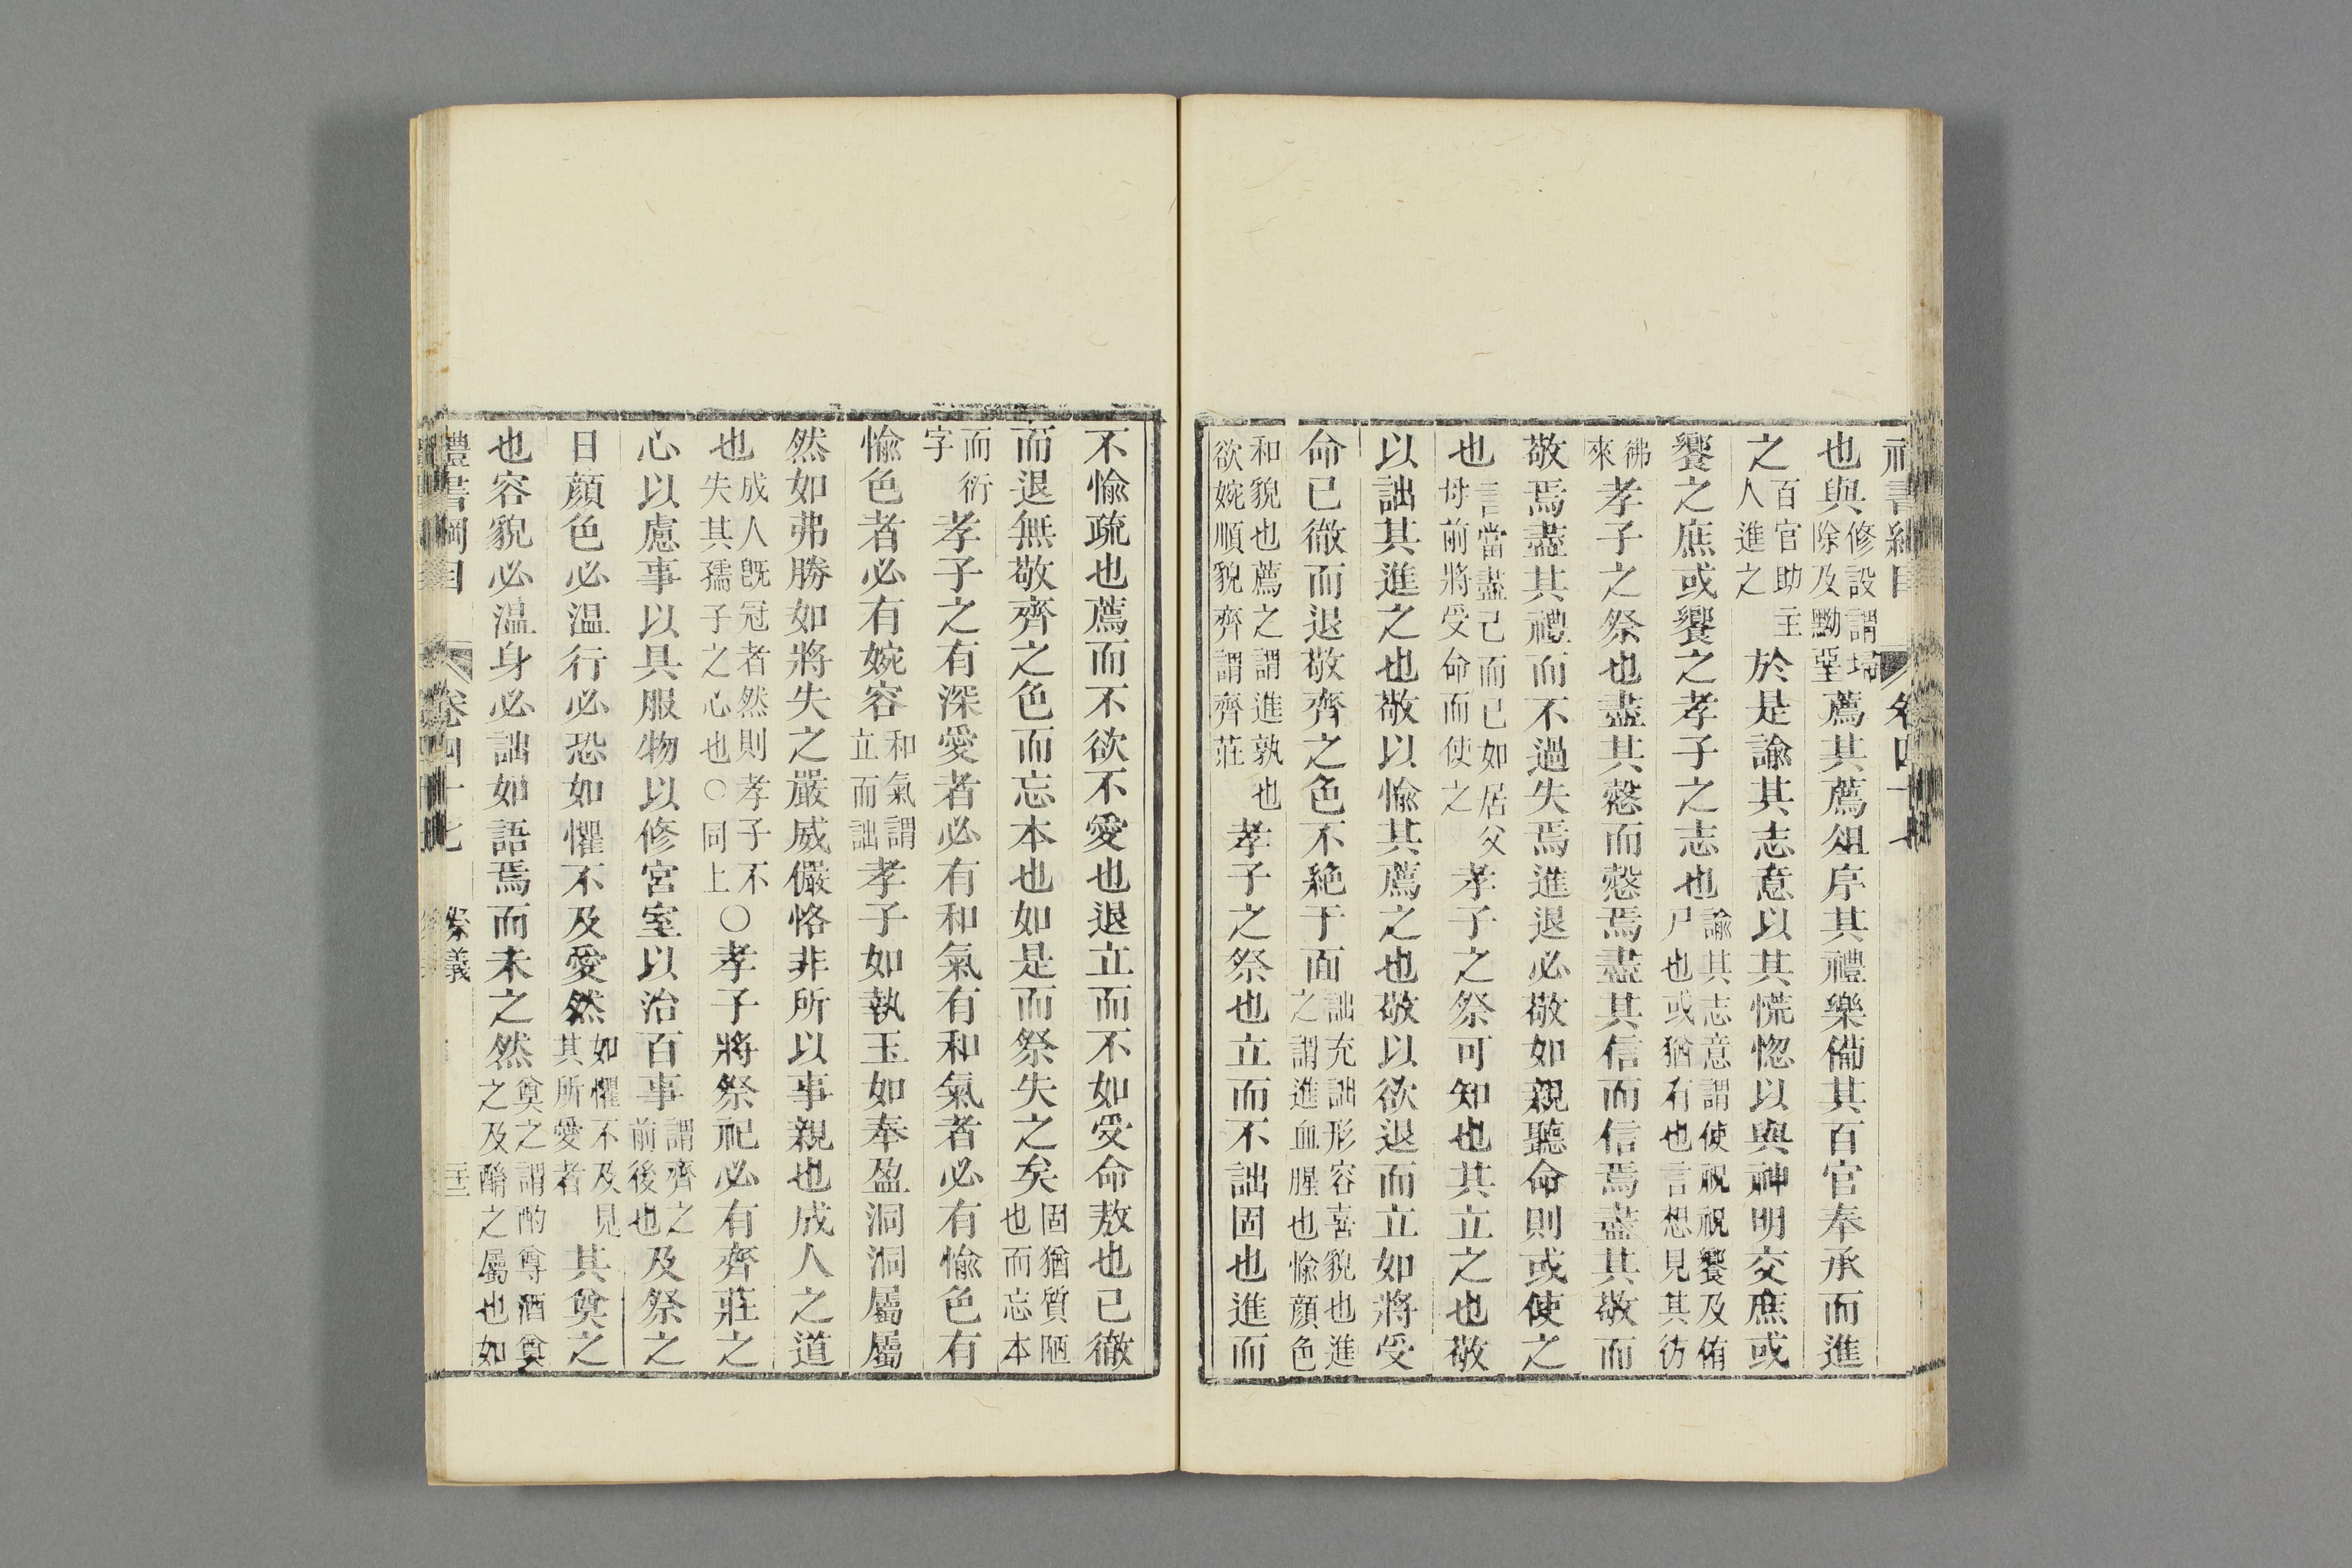 也與修設謂埽除及黝堊薦其薦俎序其禮樂備其百官奉承而進
之百官助主人進之於是諭其志意以其慌惚以與神明交庶或
饗之庶或饗之孝子之志也諭其志意謂使祝祝饗及侑尸也或猶有也言想見其彷
彿來孝子之祭也盡其愨而愨焉盡其信而信焉盡其敬而
敬焉盡其禮而不過失焉進退必敬如親聽命則或使之
也言當盡己而已如居父母前將受命而使之孝子之祭可知也其立之也敬
以詘其進之也敬以愉其薦之也敬以欲退而立如將受
命已徹而退敬齊之色不絶于面詘充詘形容喜貌也進之謂進血腥也愉顏色
和貌也薦之謂進孰也欲婉順貌齊謂齊莊孝子之祭也立而不詘固也進而
不愉疏也薦而不欲不愛也退立而不如受命敖也已徹
而退無敬齊之色而忘本也如是而祭失之矣固猶質陋也而忘本
而衍字孝子之有深愛者必有和氣有和氣者必有愉色有
愉色者必有婉容和氣謂立而詘孝子如執玉如奉盈洞洞屬屬
然如弗勝如將失之嚴威儼恪非所以事親也成人之道
也成人旣冠者然則孝子不失其孺子之心也○同上○孝子將祭祀必有齊莊之
心以慮事以具服物以修宮室以治百事謂齊之前後也及祭之
日顏色必溫行必恐如懼不及愛然如懼不及見其所愛者其奠之
也容貌必溫身必詘如語焉而未之然奠之謂酌尊酒奠之及酳之屬也如
禮書綱目 卷四十七 祭義